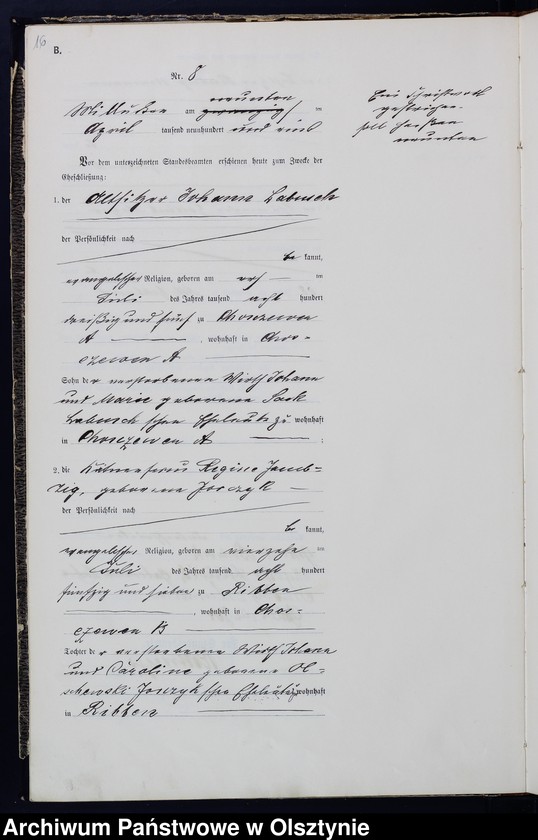 16
B.
Nr. 8
neunten
am zwanzigs/ ten
April tausend neunhundert und eins
Ein Druckwort
gestrichen.
soll heißen
neunten
Vor dem unterzeichneten Standesbeamten erschienen heute zum Zwecke der
Eheschließung:
1. der Altsitzer Johann Labusch
der Persönlichkeit nach
be kannt,
evangelischer Religion, geboren am ten
Juli des Jahres tausend acht hundert
dreißig und fünf zu Choszewen
A , wohnhaft in Chos-
zewen A
Sohn der verstorbenen Wirth Johann
und Marie geborene Sack
Labusch'schen Eheleute zu wohnhaft
in Choszewen A ;
2. die Regine
geborene Jorczyk
der Persönlichkeit nach
be kannt,
evangelischer Religion, geboren am vierzehn ten
Juli des Jahres tausend acht hundert
fünfzig und sieben zu Ribben
, wohnhaft in Chos-
zewen B
Tochter der verstorbenen Wirth Johann
und Caroline geborene Ol-
schewski Jorczyk'schen Eheleute wohnhaft
in Ribben
Archiwum Państwowe w Olsztynie